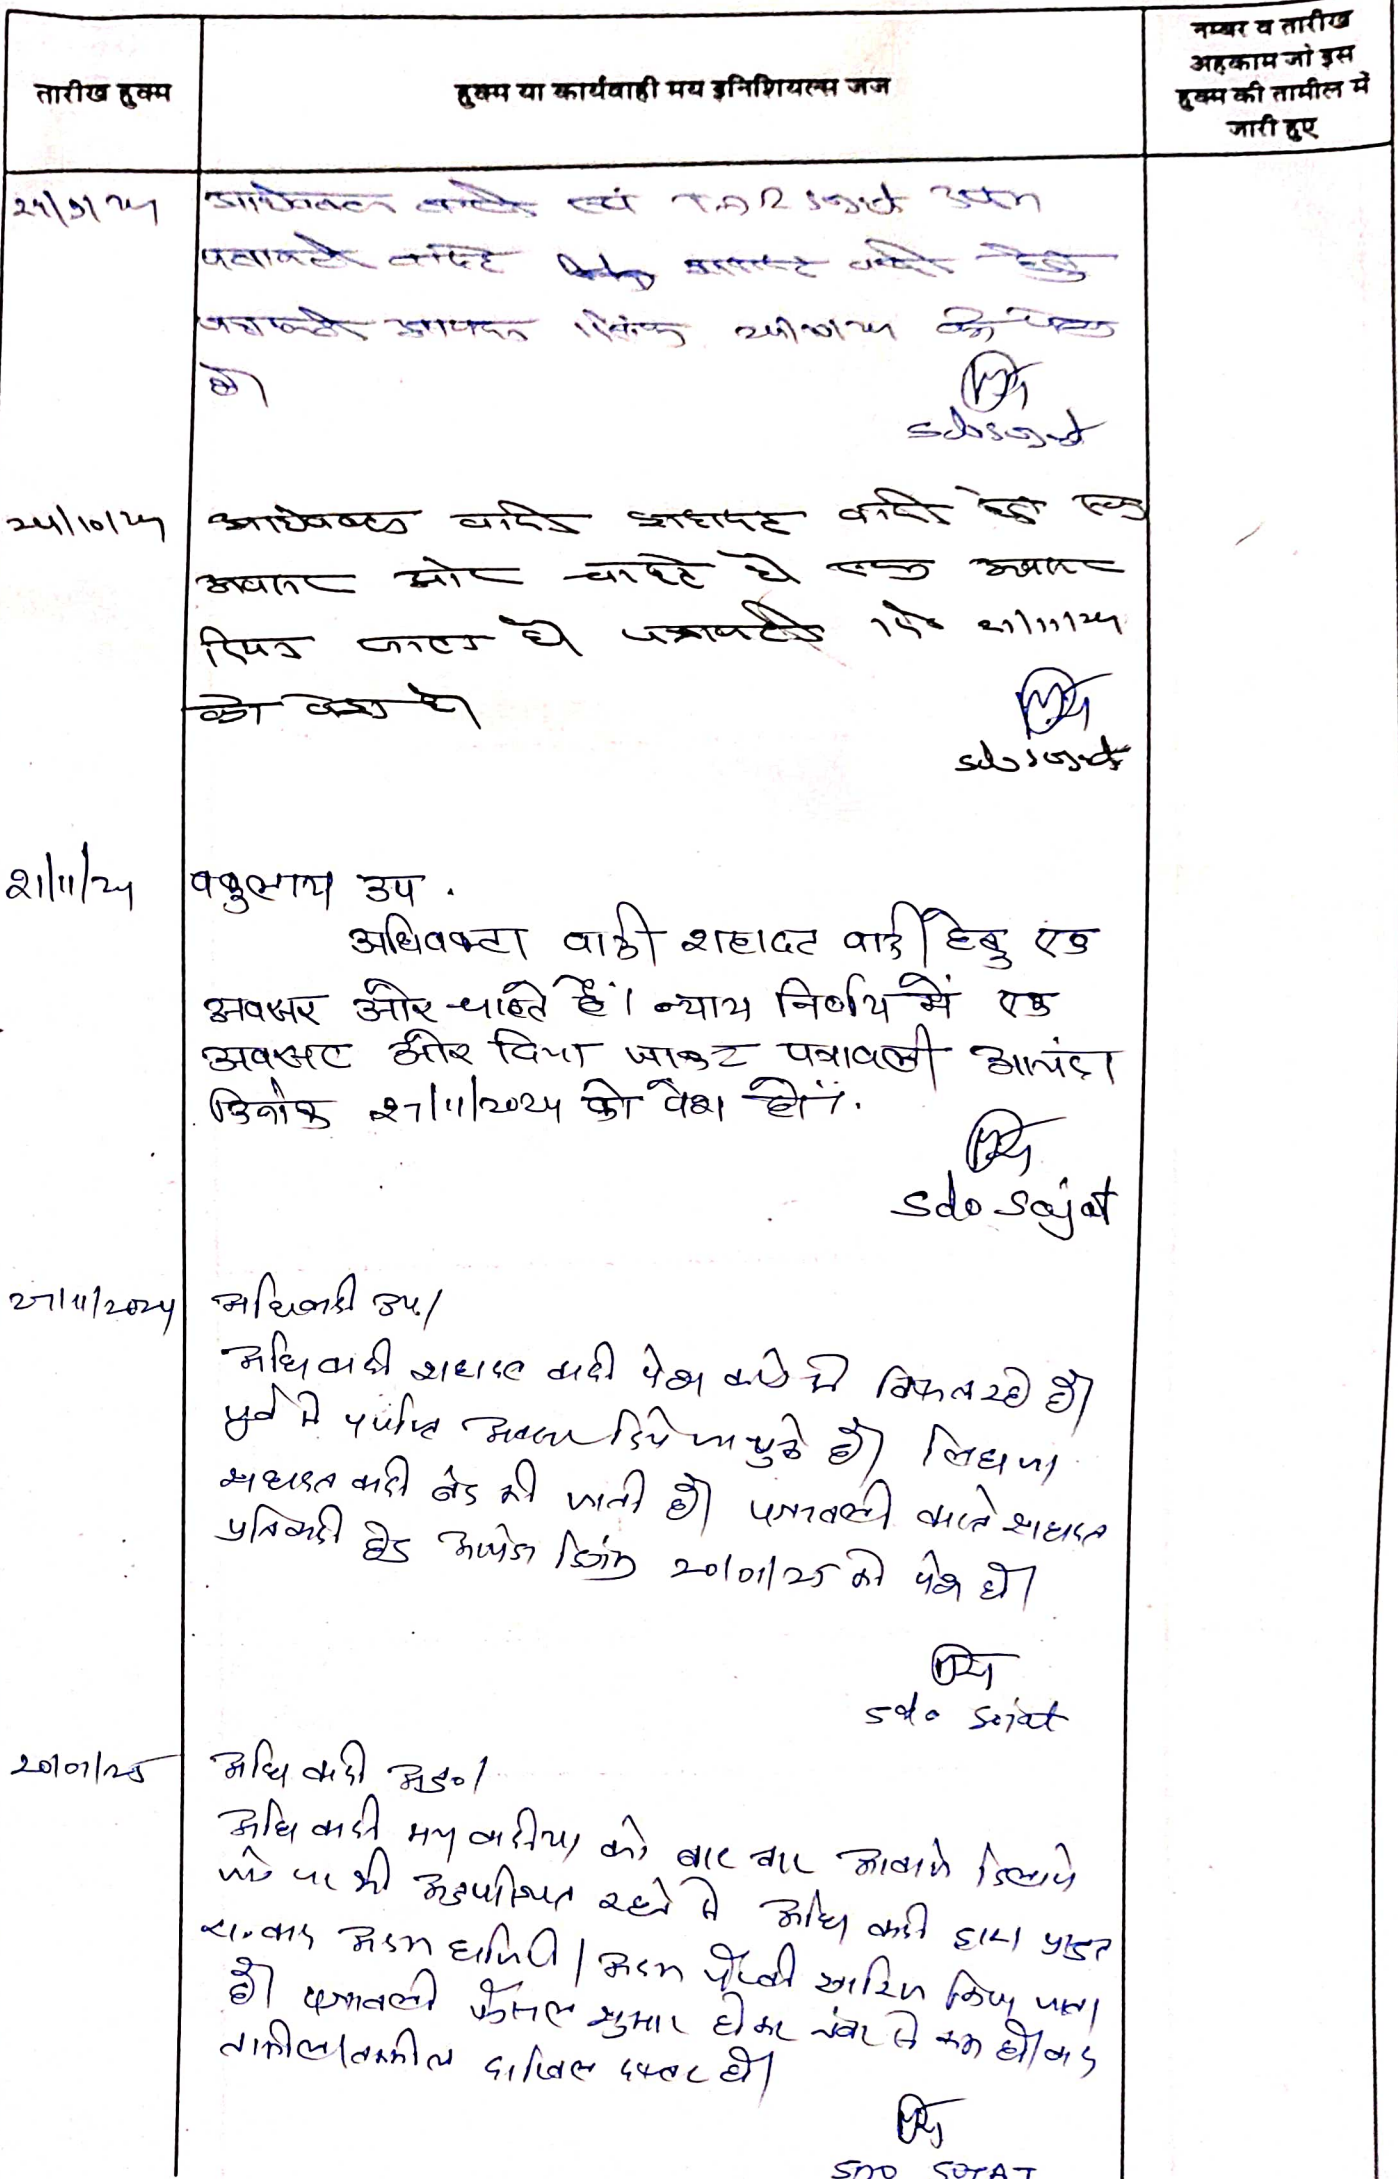 तारीख हुक्म
हुक्म या कार्यवाही मय इनिशियल्स जज
नम्बर व तारीख
अहकाम जो इस
हुक्म की तामील में
जारी हुए
अधिवक्ता वादी एवं T.D.R Sojat उपस्थित
पत्रावली वास्ते हेतु
पत्रावली आयन्दा दिनांक 24/10/24 को पेश
हो।
sdo sojat
24/10/24
अधिवक्ता वादी शहादत वादी हेतु एक
अवसर और चाहते है एक अवसर
दिया जाता है पत्रावली 21/11/24
को पेश हो।
sdo sojat
21/11/24
वकुलाय उप.
अधिवक्ता वादी शहादत वादी हेतु एक
अवसर और चाहते हैं। न्याय निर्णय में एक
अवसर और दिया जाकर पत्रावली आयंदा
दिनांक 27/11/2024 को पेश हो।
sdo sojat
27/11/2024
अधि वादी उप।
अधि वादी शहादत वादी पेश करने में विफल रहे है।
पूर्व में पर्याप्त अवसर दिये जा चुके है। लिहाजा
शहादत वादी बंद की जाती है। पत्रावली वास्ते शहादत
प्रतिवादी हेतु आयंदा दिनांक 20/01/25 को पेश हो।
sdo sojat
20/01/25
अधि वादी अनु०।
अधि वादी मय वादीया को बार बार आवाजे दिलाये
जाने पर भी अनुपस्थित रहने से अधि वादी द्वारा प्रस्तुत
वाद अदम हाजिरी / अदम पैरवी खारिज किया जाता
है। पत्रावली फैसल शुमार होकर नंबर से कम हो। बाद
तामील तकमील दाखिल दफ्तर हो।
SDO SOJAT